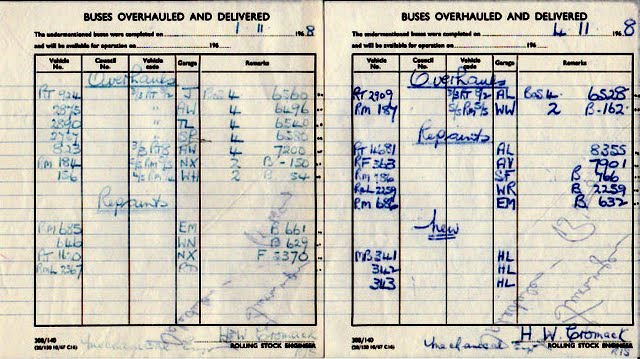 BUSES OVERHAULED AND DELIVERED
The undermentioned buses were completed on 1 11 196 8
and will be available for operation on 196
Vehicle No. Council No. Vehicle code Garage Remarks
Overhauls
RT 924 J Bos 4 6560
2875 " AW 4 6496
2840 " TL 4 6540
" 4 6580
823 AW 4 7200
RM 184 NX 2 B-150
156 WH 2 B 54
Repaints
RM 685 EM B 661
646 WN B 629
RT NX F 3370
RML 2367
H W Cromack
308/140
Mechanical
ROLLING STOCK ENGINEER
BUSES OVERHAULED AND DELIVERED
The undermentioned buses were completed on 4 11 196 8
and will be available for operation on 196
Vehicle No. Council No. Vehicle code Garage Remarks
Overhauls
RT 2909 AL Bos 4 6528
RM 187 WW 2 B-162
Repaints
RT 4681 AL 8355
RF 363 AV 7901
RM 786 SF B 766
RML 2259 WR B 2259
RM 686 EM B 632
New
MB 341 HL
342 HL
343 HL
H W Cromack
308/140
Mechanical
ROLLING STOCK ENGINEER